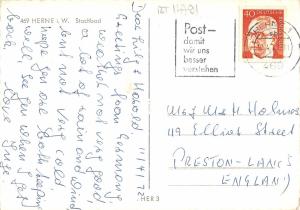 469 HERNE i. W. Stadtbad
Dear Lucy & Harold 11/4/72
Greetings from Germany
weather not very good,
a lot of rain and wind
but not very cold
hope you are both keeping
well, see you when I get
back
Love
Inge
HER 3
Post—
damit
wir uns
besser
verstehen
40
Mr & Mrs M Holmes
119 Elliot Street
PRESTON-LANCS
ENGLAND